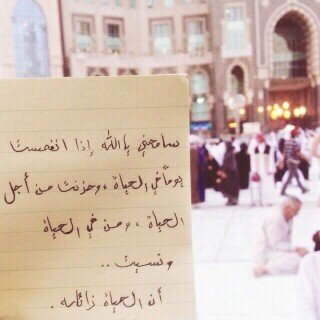 سامحني يا الله إذا انغمست
يوماً في الحياة ، وحزنت من أجل
الحياة ، ومن في الحياة
ونسيت ..
أن الحياة زائله .